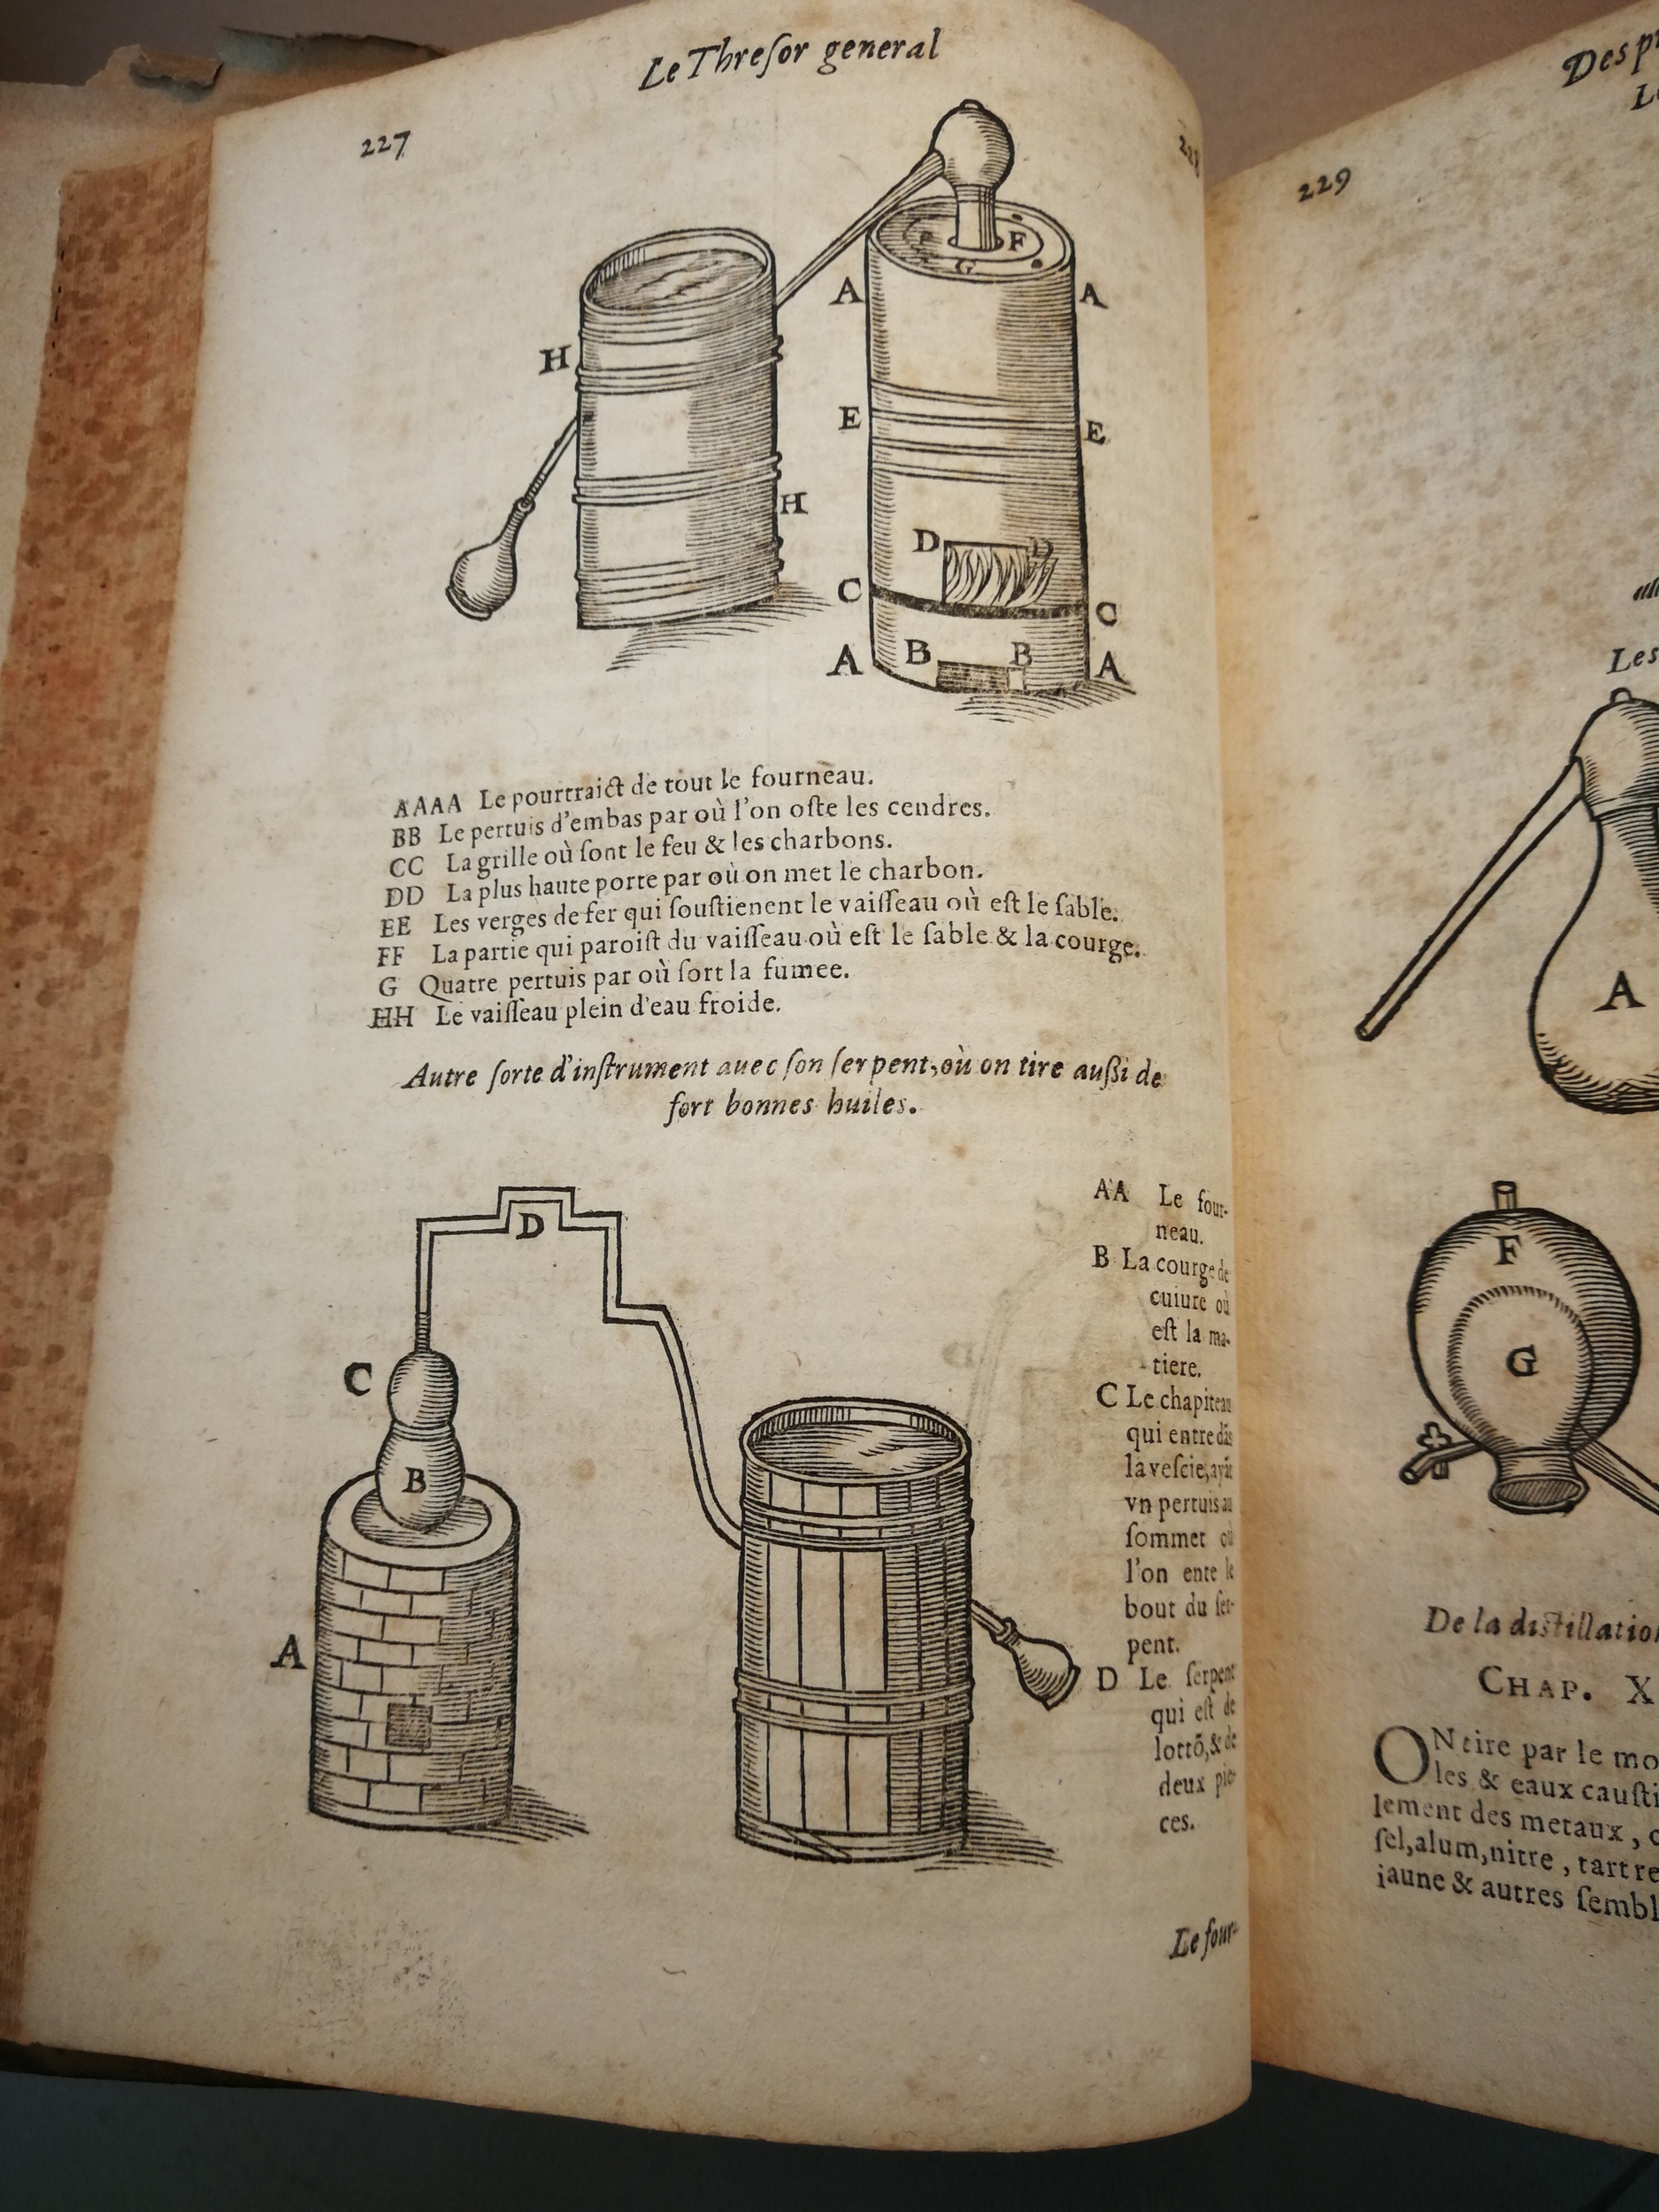 Le Threſor general
227
228
F
G
A
A
H
E
E
H
D
D
C
C
B
B
A
A
AAAA Le pourtraict de tout le fourneau.
BB Le pertuis d'embas par où l'on oſte les cendres.
CC La grille où ſont le feu & les charbons.
DD La plus haute porte par où on met le charbon.
EE Les verges de fer qui ſouſtienent le vaiſſeau où eſt le ſable.
FF La partie qui paroiſt du vaiſſeau où eſt le ſable & la courge.
G Quatre pertuis par où ſort la fumee.
HH Le vaiſſeau plein d'eau froide.
Autre ſorte d'inſtrument auec ſon ſerpent, où on tire außi de
fort bonnes huiles.
D
C
B
A
AA Le four-
neau.
B La courge de
cuiure où
eſt la ma-
tiere.
C Le chapiteau
qui entre dãs
la veſcie, ayãt
vn pertuis au
ſommet où
l'on ente le
bout du ſer-
pent.
D Le ſerpent
qui eſt de
lottõ, & de
deux pie-
ces.
Le four-
Des
229
Les
A
F
G
De la distillation
CHAP. X
ON tire par le
les & eaux
lement des metaux,
ſel, alum, nitre, tartre
iaune & autres